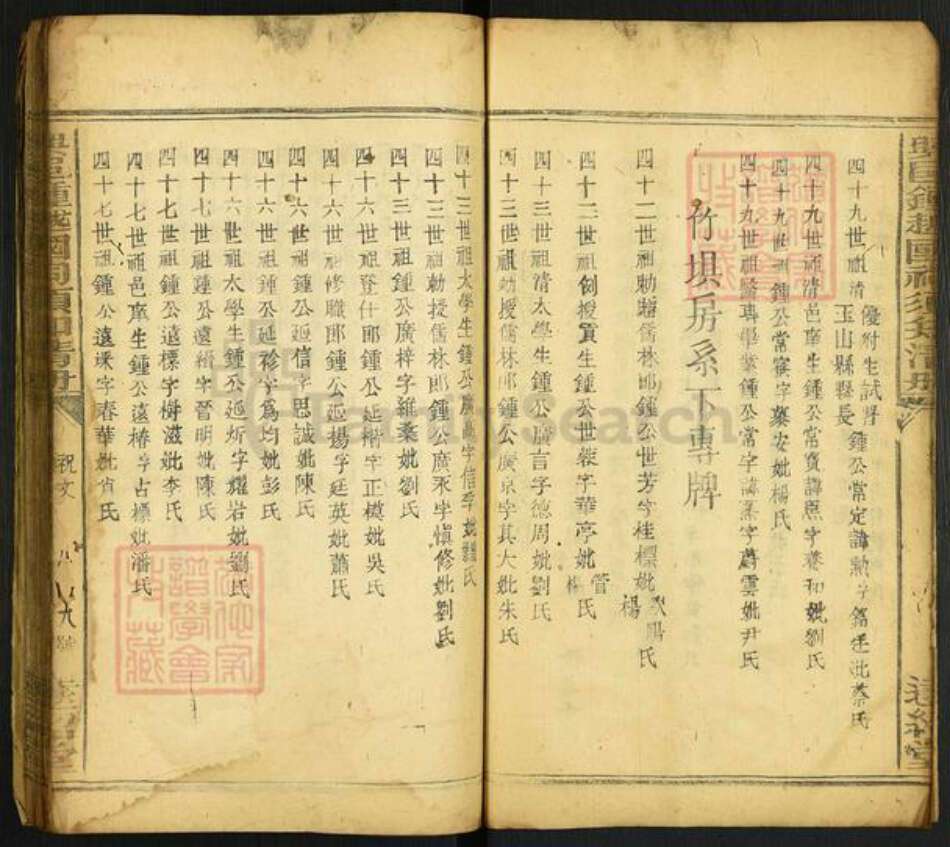 四十九世祖清優附生試署玉山縣縣長鍾公常定諱勲字妣蔡氏
四十九世祖清邑庠生鍾公常賓諱熙字養和妣劉氏
四十九世祖鍾公常寀字黎安妣楊氏
四十九世祖鍾公常字諱字蔚雲妣尹氏
竹埧房系下專牌
四十二世祖勅贈儒林郎鍾公世芳字桂標妣歐陽楊氏
四十二世祖例授貢生鍾公世蓉字華亭妣管楊氏
四十三世祖清太學生鍾公廣言字德周妣劉氏
四十三世祖勅授儒林郎鍾公廣京字其大妣朱氏
四十三世祖太學生鍾公廣字信孚妣魏氏
四十三世祖勅授儒林郎鍾公廣永字愼修妣劉氏
四十三世祖鍾公廣梓字維桑妣劉氏
四十六世祖登仕郎鍾公延楷字正模妣吳氏
四十六世祖修職郎鍾公延揚字廷英妣蕭氏
四十六世祖鍾公延信字思誠妣陳氏
四十六世祖鍾公延袗字爲均妣彭氏
四十六世祖太學生鍾公延炘字耀岩妣劉氏
四十七世祖鍾公遠縉字晉明妣陳氏
四十七世祖鍾公遠標字樹滋妣李氏
四十七世祖邑庠生鍾公遠椿字占標妣潘氏
四十七世祖鍾公遠琛字春華妣肖氏
祝文